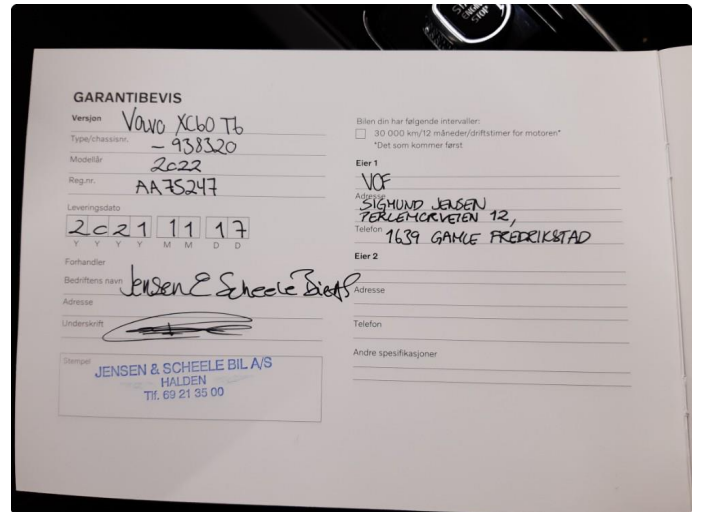 START
STOP
GARANTIBEVIS
Versjon Volvo XC60 T6
Type/chassisnr. - 938320
Modellår 2022
Reg.nr. AA75247
Leveringsdato
2021 11 17
Y Y Y Y M M D D
Forhandler
Bedriftens navn Jensen & Scheele Bil A/S
Adresse
Underskrift
Stempel
JENSEN & SCHEELE BIL A/S
HALDEN
Tlf. 69 21 35 00
Bilen din har følgende intervaller:
30 000 km/12 måneder/driftstimer for motoren*
*Det som kommer først
Eier 1
VCF
Adresse
SIGMUND JENSEN
PERLEMORVEIEN 12,
Telefon 1639 GAMLE FREDRIKSTAD
Eier 2
Adresse
Telefon
Andre spesifikasjoner